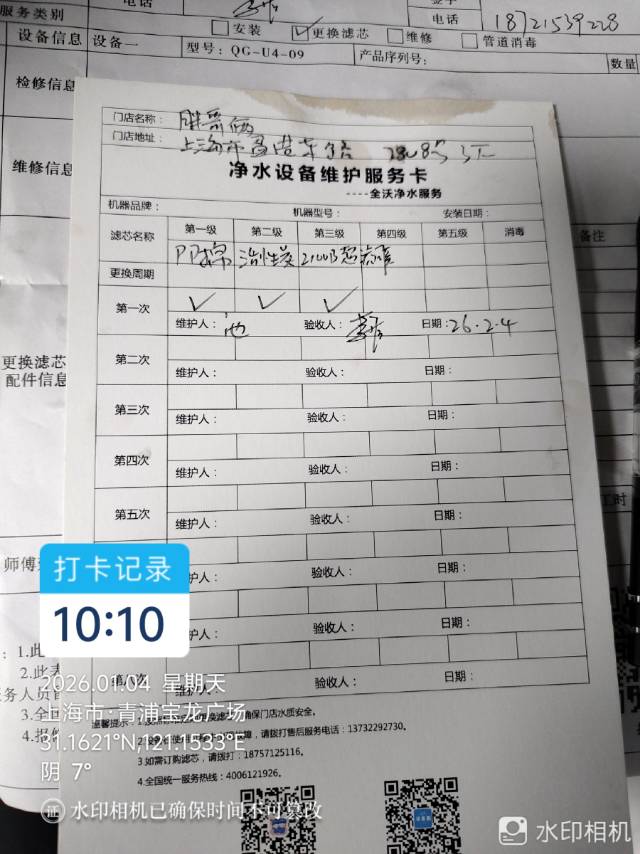 电话
签字
电话 18721539228
服务类别 安装 更换滤芯 维修 管道消毒
设备信息 设备一 型号：QG-U4-09 产品序列号： 数量
检修信息
维修信息
备注
更换滤芯
配件信息
工时
门店名称：
门店地址： 上海市
净水设备维护服务卡
----全沃净水服务
机器品牌： 机器型号： 安装日期：
滤芯名称 第一级 第二级 第三级 第四级 第五级 消毒
PP棉
更换周期
第一次 ✓ ✓ ✓
维护人： 验收人： 日期：26.2.4
第二次
维护人： 验收人： 日期：
第三次
维护人： 验收人： 日期：
第四次
维护人： 验收人： 日期：
第五次
维护人： 验收人： 日期：
验收人： 日期：
验收人： 日期：
第八次
维护人： 验收人： 日期：
温馨提示：
3.如需订购滤芯，请拨打：18757125116。
4.全国统一服务热线：4006121926。
打卡记录
10:10
2026.01.04 星期天
上海市·青浦宝龙广场
31.1621°N,121.1533°E
阴 7°
证 水印相机已确保时间不可篡改
水印相机